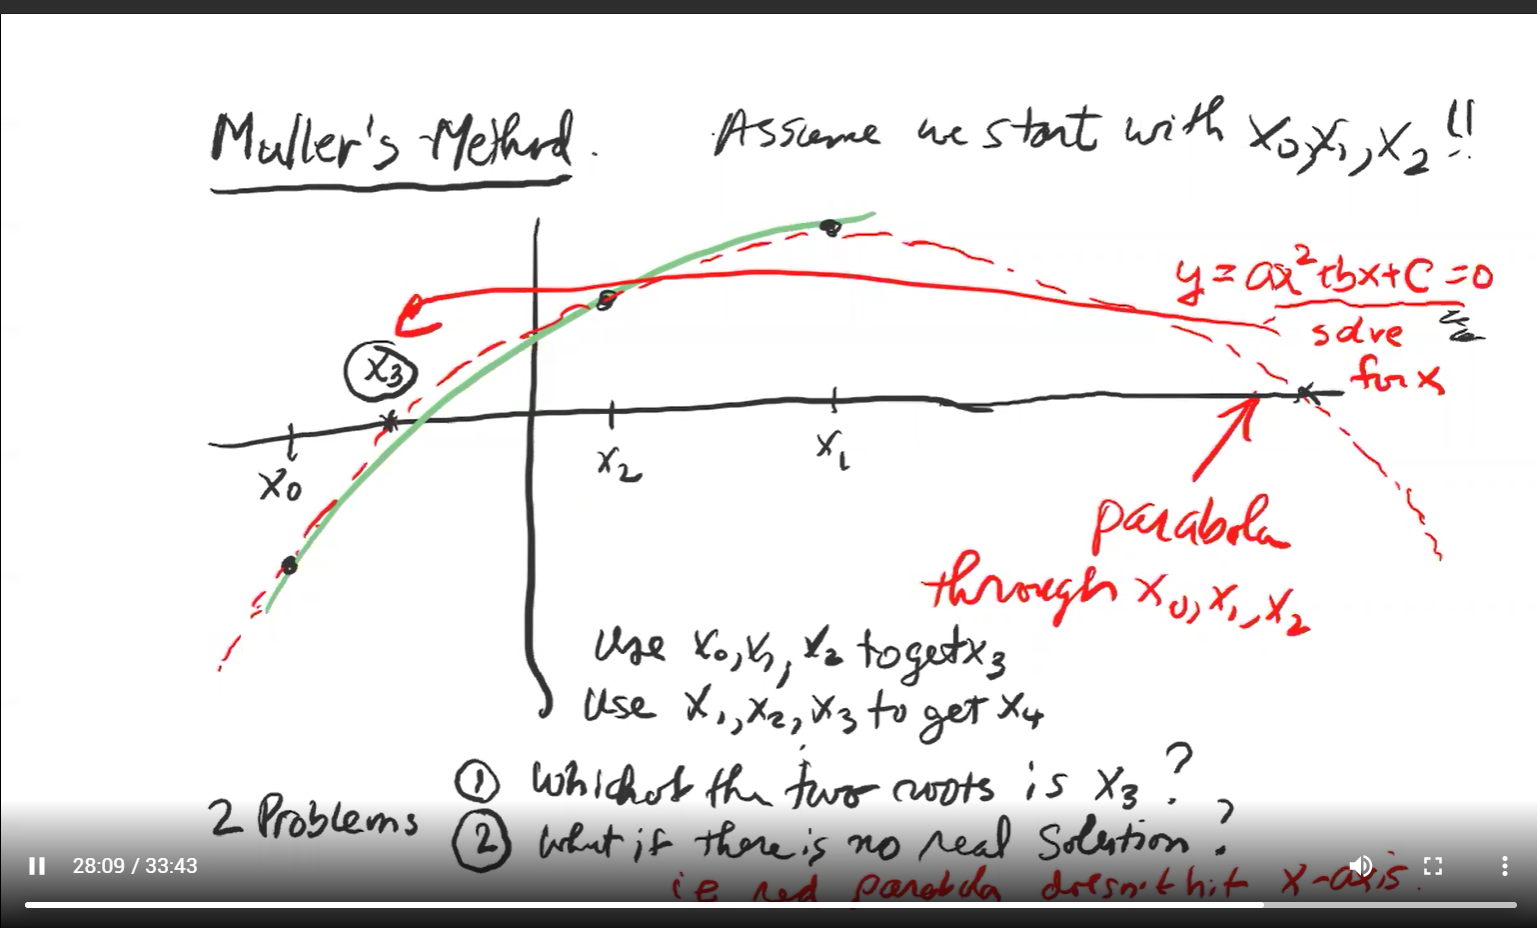 Muller's Method. Assume we start with x₀, x₁, x₂ !!
y = ax² + bx + c = 0
solve
for x
x₃
x₀ x₂ x₁
parabola
through x₀, x₁, x₂
Use x₀, x₁, x₂ to get x₃
Use x₁, x₂, x₃ to get x₄
2 Problems
① Which of the two roots is x₃ ?
② What if there is no real solution ?
i.e red parabola doesn't hit x-axis.
28:09 / 33:43